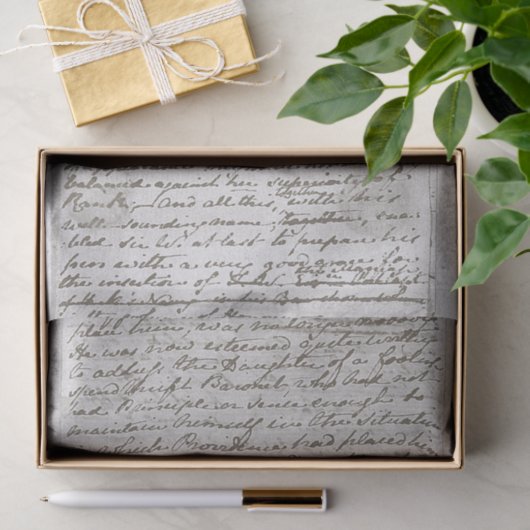 balanced against his superiority of
Rank; and all this, with his
well-sounding name, together, ena-
bled Sir W. at last to prepare his
pen with a very good grace for
the insertion of the marriage
plain
He was now esteemed quite worthy
to address the Daughter of a foolish
spendthrift Baronet, who had not
had Principle or sense enough to
maintain himself in the Situation
in which Providence had placed him